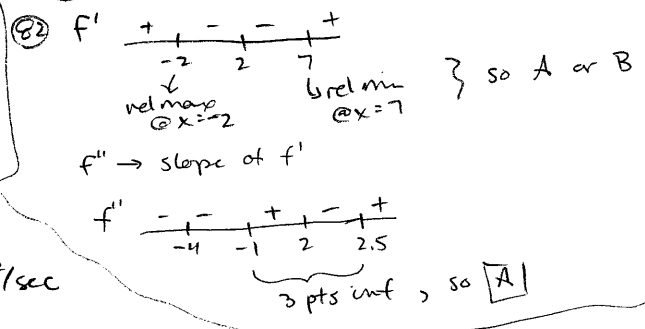 82 f' + - - +
-2 2 7
rel max @x=-2
rel min @x=7
} so A or B
f" → slope of f'
f" - - + - +
-4 -1 2 2.5
3 pts inf, so A
/sec